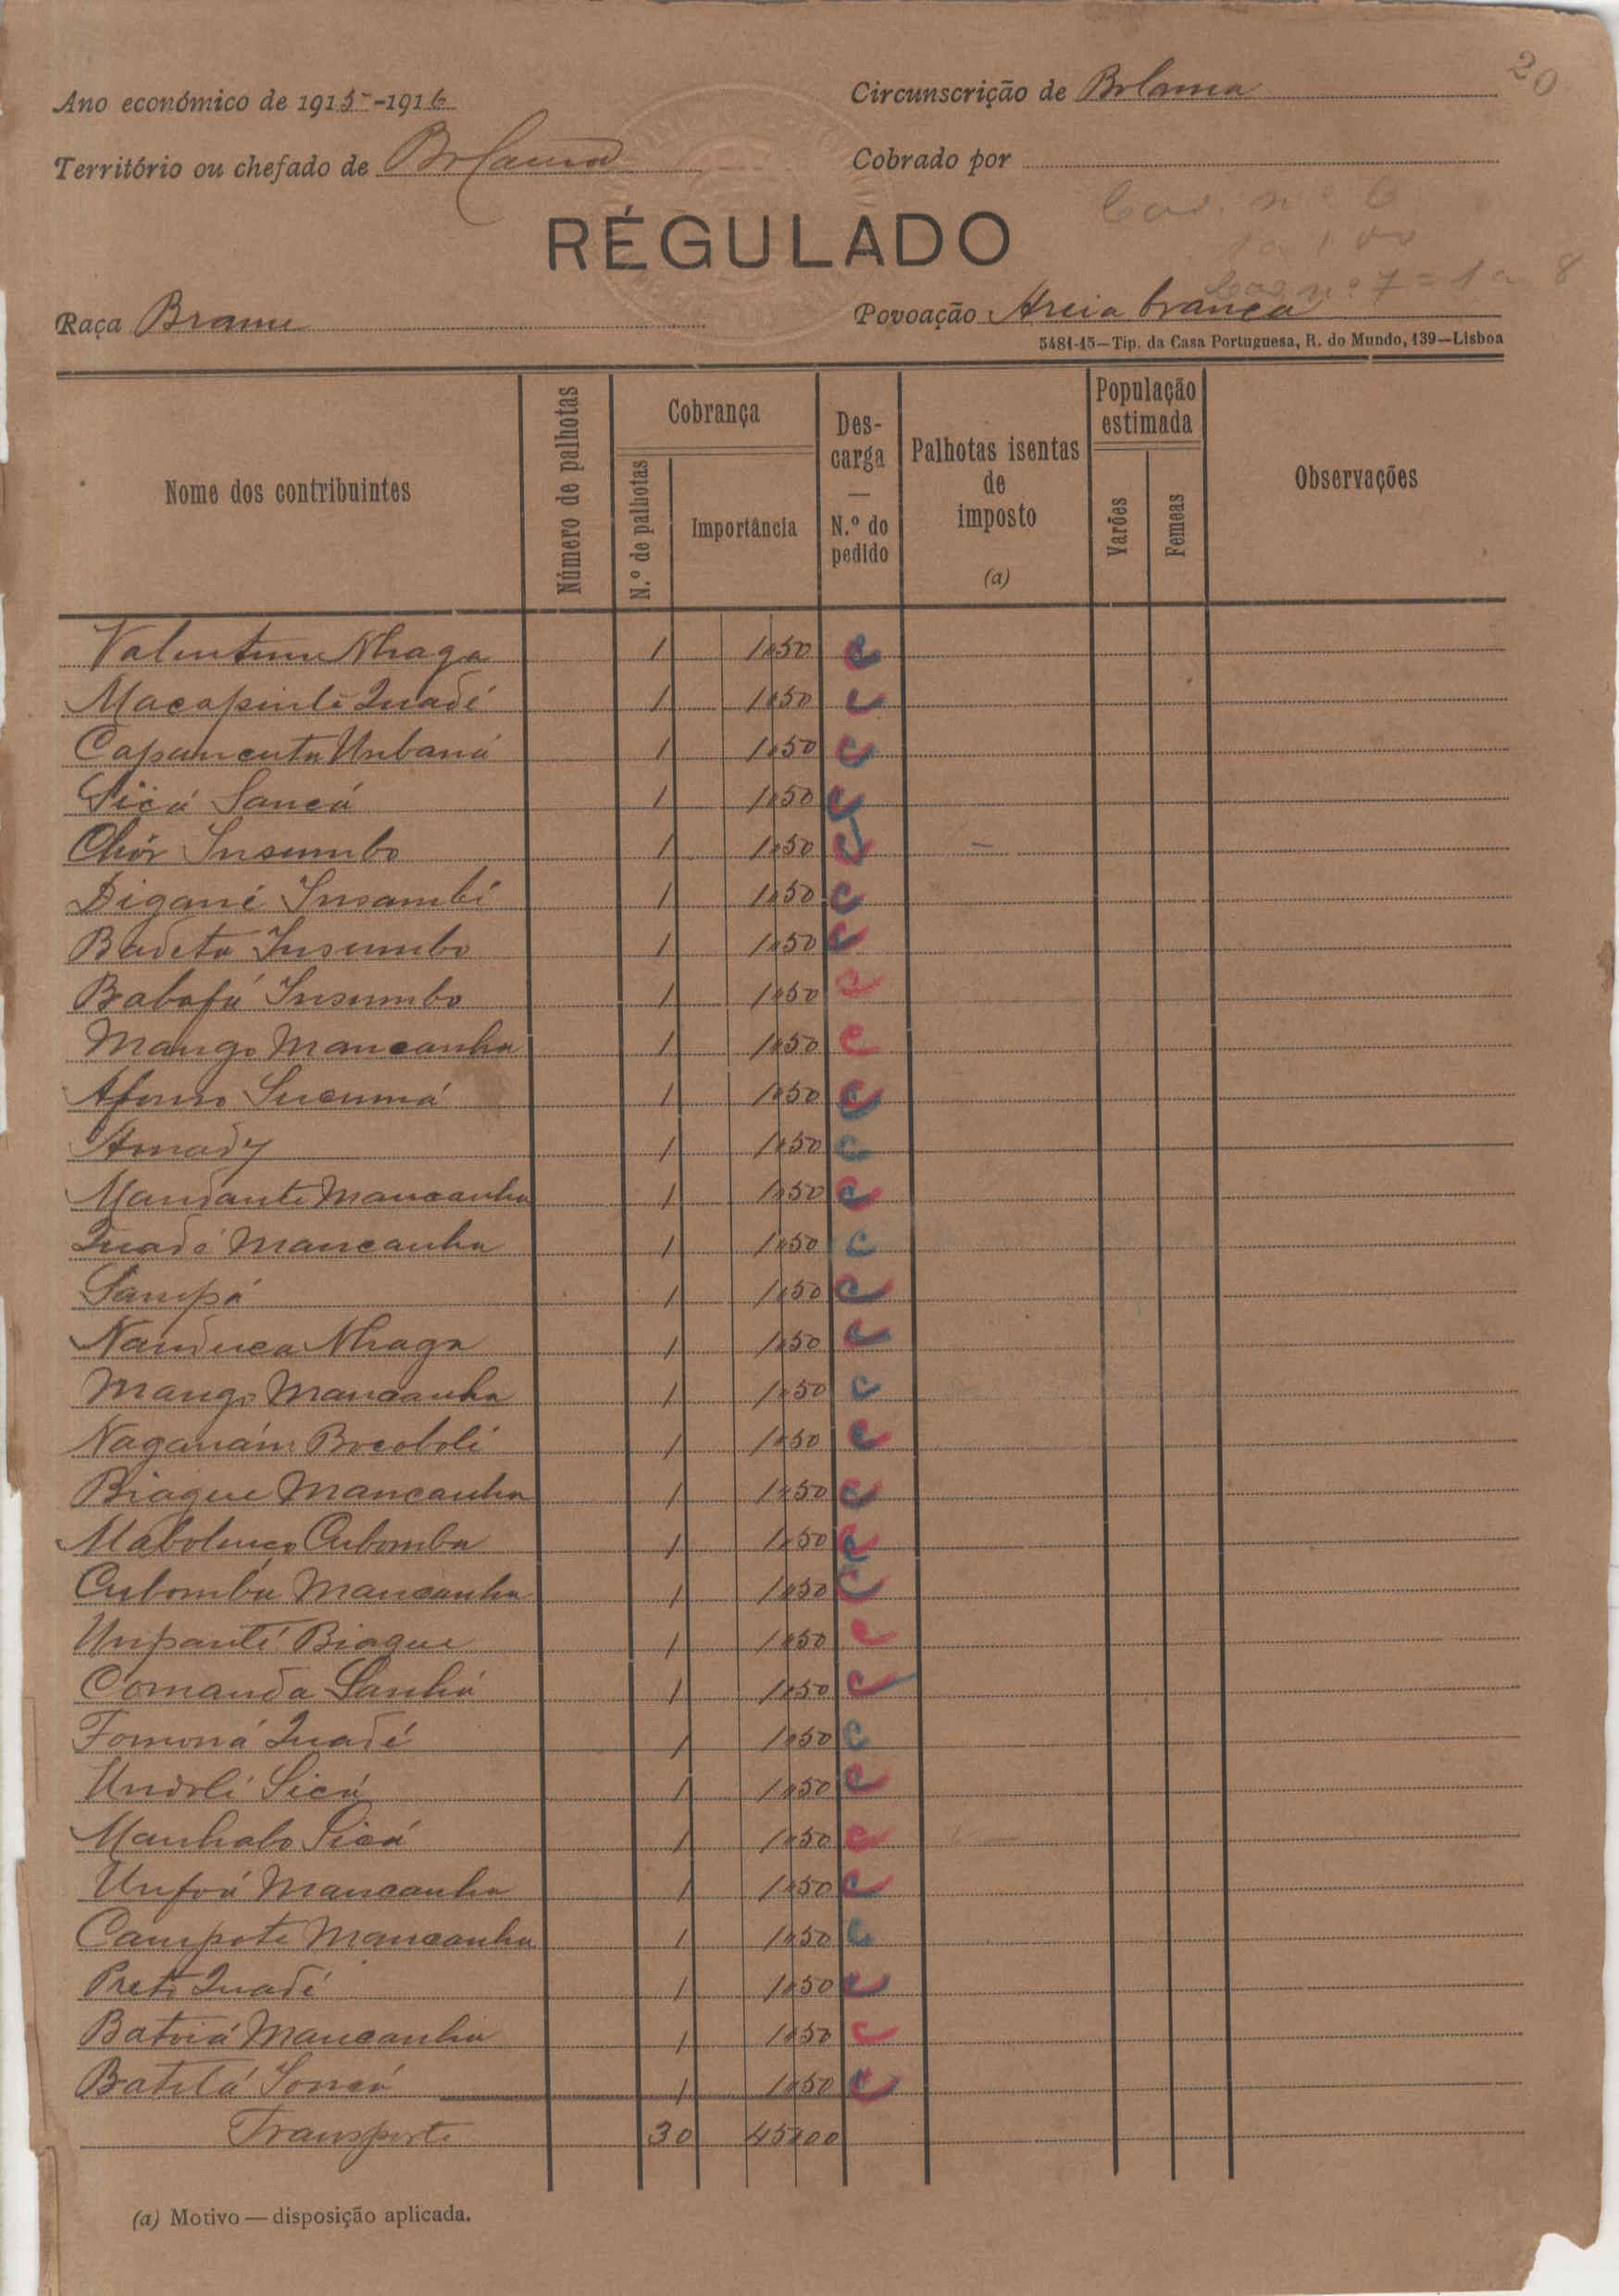 20
Ano económico de 1915-1916
Circunscrição de Bolama
Território ou chefado de Bolama
Cobrado por
RÉGULADO
Raça Brame
Povoação Areia branca
5481-15—Tip. da Casa Portuguesa, R. do Mundo, 139—Lisboa
Nome dos contribuintes
Número de palhotas
Cobrança
N.º de palhotas
Importância
Des-
carga
—
N.º do
pedido
Palhotas isentas
de
imposto
(a)
População
estimada
Varões
Femeas
Observações
Valentim Nhaga 1 1$50 C
Quadé 1 1$50 C
Unbaná 1 1$50 C
Sicá Sancá 1 1$50 C
Chór Insumbo 1 1$50 C
Digané Insambi 1 1$50 C
Badeta Insumbo 1 1$50 C
Babafá Insumbo 1 1$50 C
Mango Mancanha 1 1$50 C
Afonso Sucumá 1 1$50 C
Amady 1 1$50 C
Mandante Mancanha 1 1$50 C
Quadé Mancanha 1 1$50 C
Sampá 1 1$50 C
Nanduca Nhaga 1 1$50 C
Mango Mancanha 1 1$50 C
Bocoboli 1 1$50 C
Biague Mancanha 1 1$50 C
Cubomba 1 1$50 C
Cubomba Mancanha 1 1$50 C
Unpanté Biague 1 1$50 C
Comanda Sanhá 1 1$50 C
Fomoná Quadé 1 1$50 C
Undoli Sicá 1 1$50 C
Manhabo Sicá 1 1$50 C
Unfoá Mancanha 1 1$50 C
Campote Mancanha 1 1$50 C
Preto Quadé 1 1$50 C
Batoiá Mancanha 1 1$50 C
Batilá Soncó 1 1$50 C
Transporte 30 45$00
(a) Motivo — disposição aplicada.